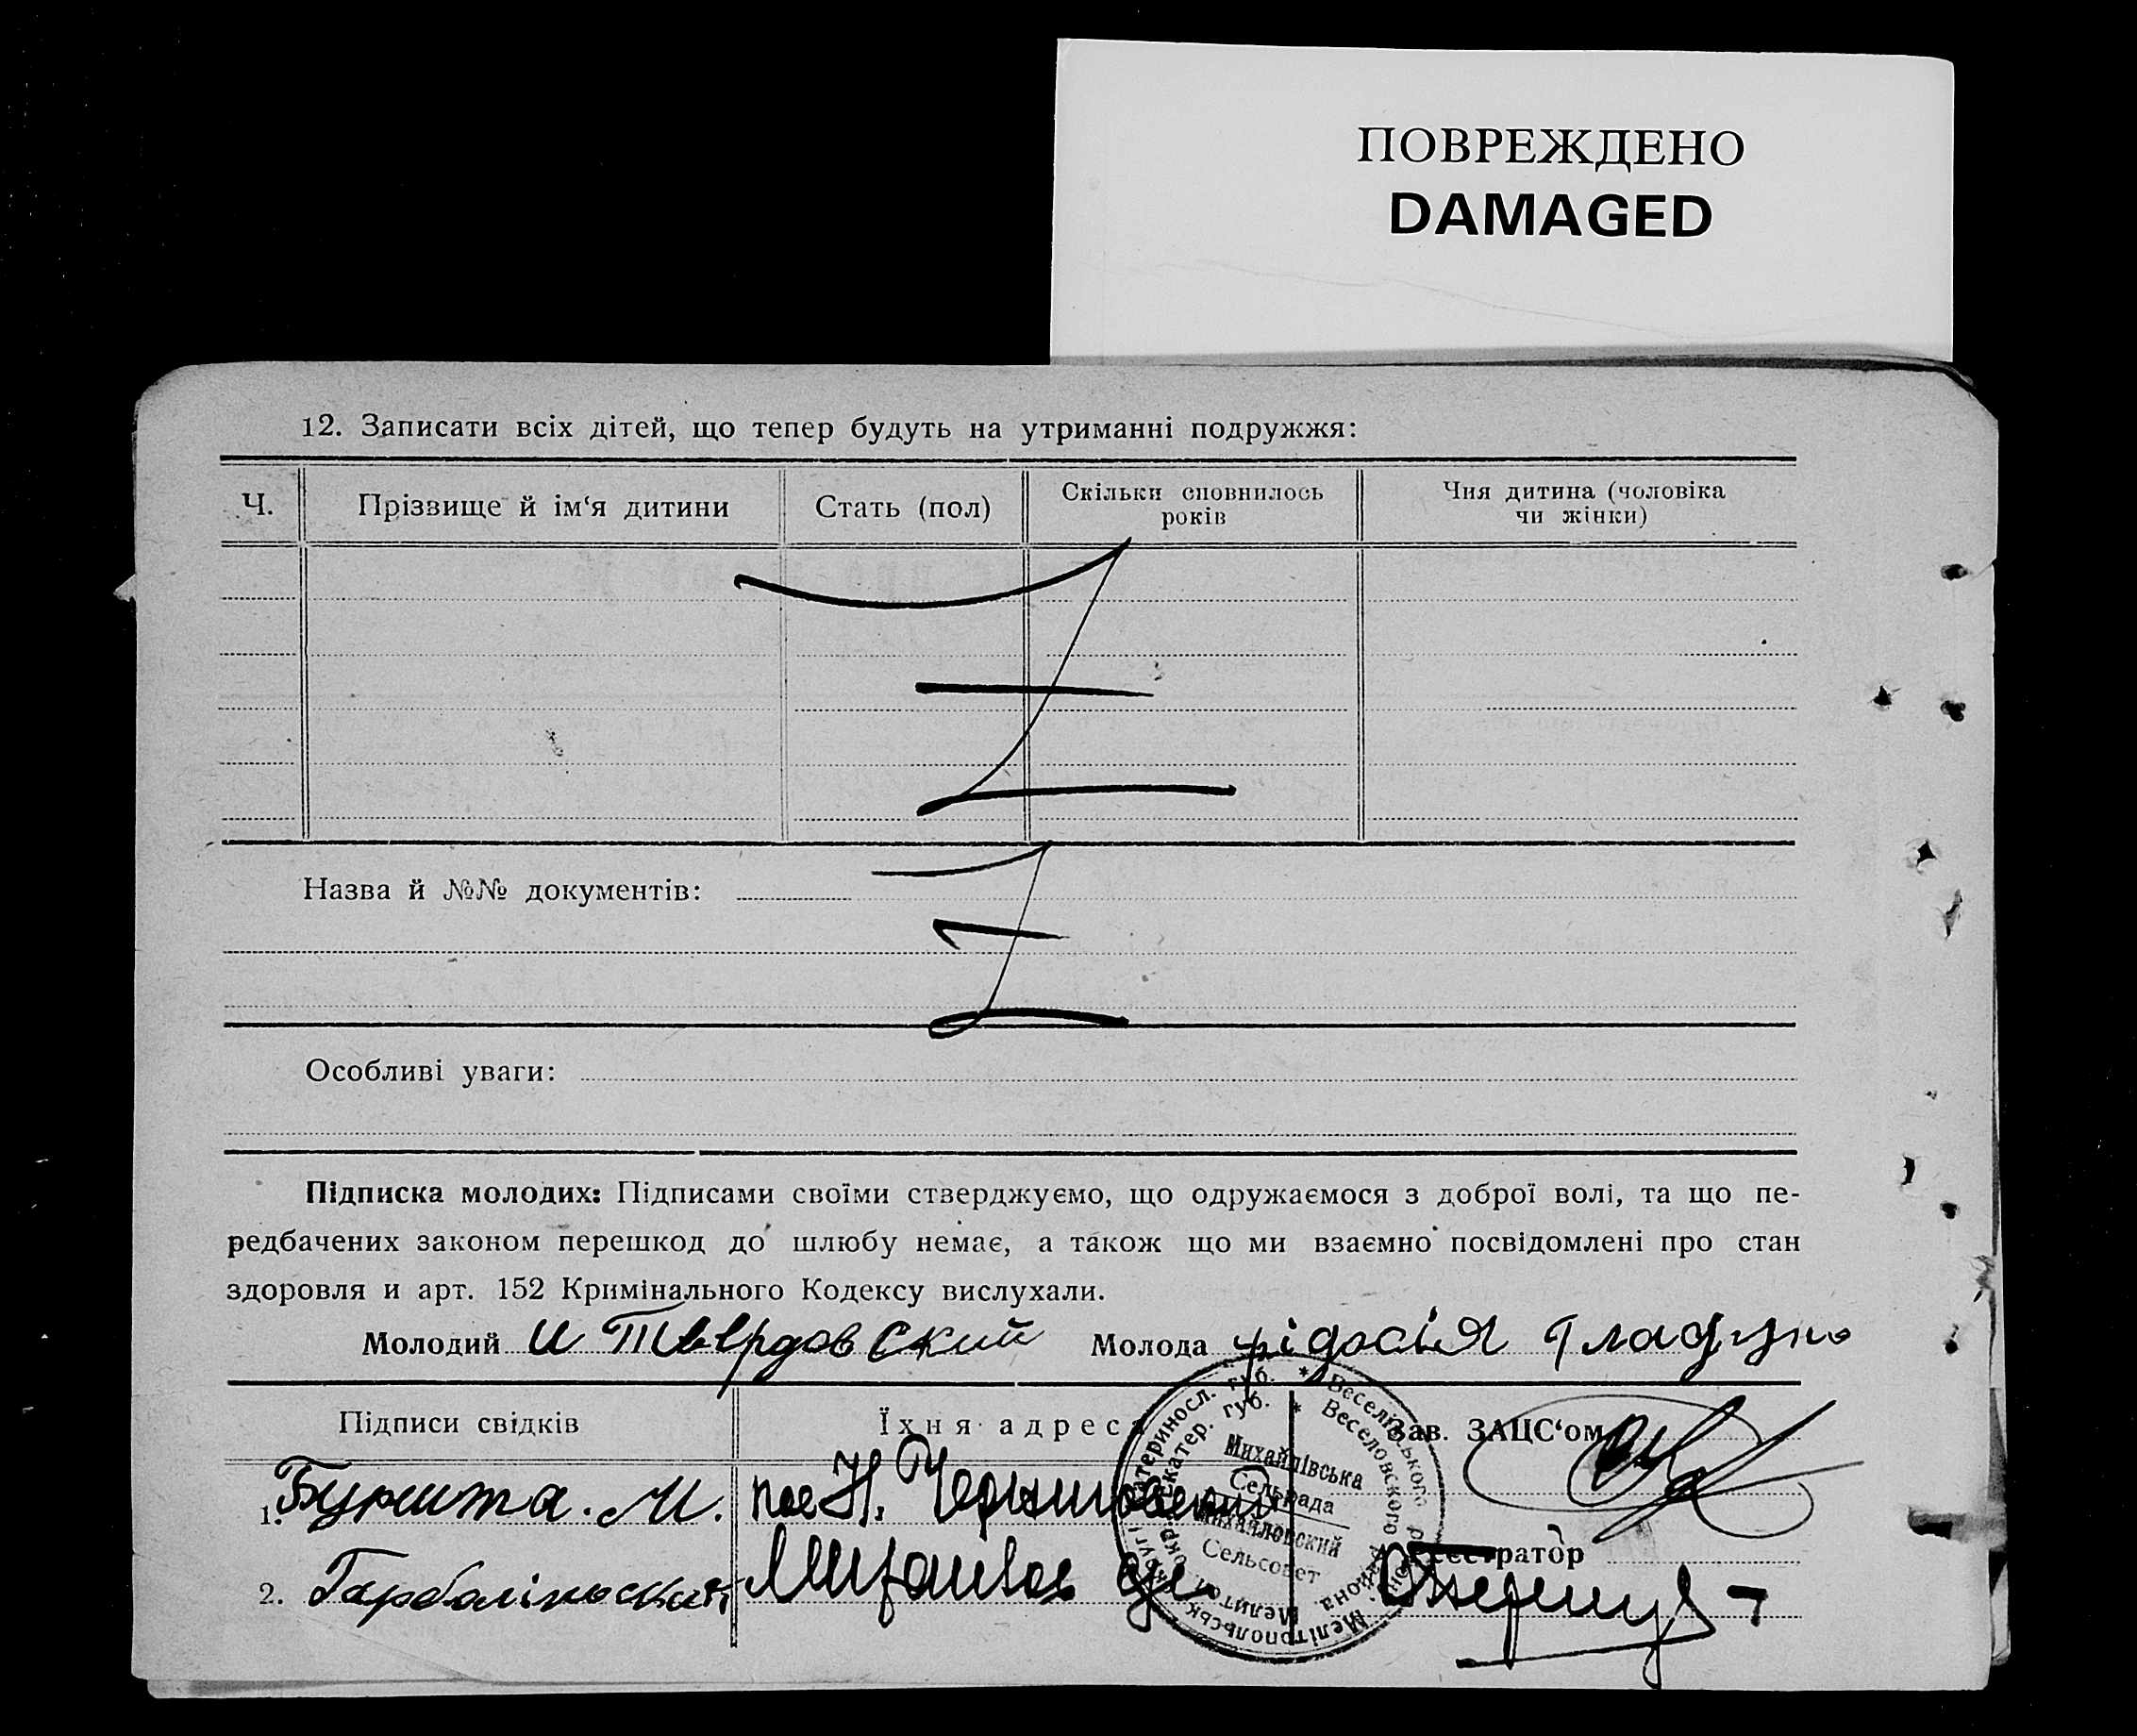 ПОВРЕЖДЕНО
DAMAGED
12. Записати всіх дітей, що тепер будуть на утриманні подружжя:
Ч. Прізвище й ім‘я дитини Стать (пол) Скільки сповнилось років Чия дитина (чоловіка чи жінки)
Назва й №№ документів:
Особливі уваги:
Підписка молодих: Підписами своїми стверджуємо, що одружаємося з доброї волі, та що пе-
редбачених законом перешкод до шлюбу немає, а також що ми взаємно посвідомлені про стан
здоровля и арт. 152 Кримінального Кодексу вислухали.
Молодий И Твердовский Молода Фідосія Гладун
Підписи свідків Їхня адреса Зав. ЗАЦС‘ом
1. Буришта. М. пос Н.
2. Михайловк
Реєстратор
Катериносл. губ. * Веселівського району Мелітопольськ. округи
Екатер. губ. * Веселовского района, Мелитоп. окр.
Михайлівська
Сельрада
Михайловский
Сельсовет